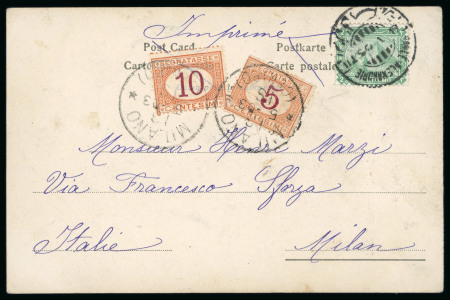 Imprimé
Post Card
Postkarte
Carte postale
SEGNATASSE
10
CENTESIMI
5
MILANO
Monsieur Henri Marzi
Via Francesco Sforza
Italie
Milan